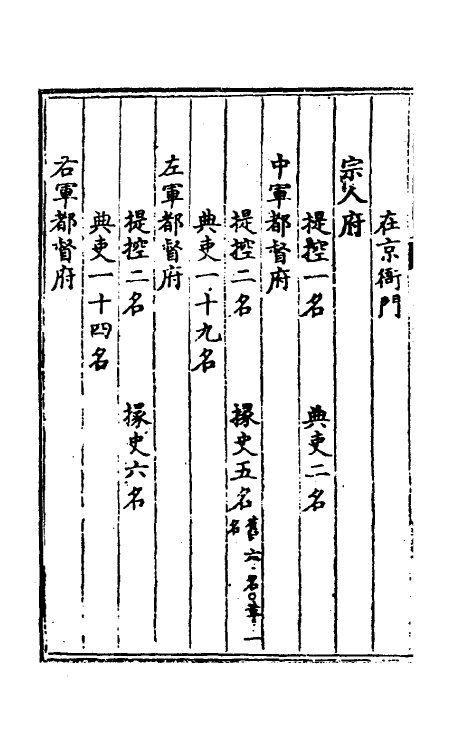 在京衙門
宗人府
提控一名 典吏二名
中軍都督府
提控二名 掾史五名舊六名○革一名
典吏一十九名
左軍都督府
提控二名 掾史六名
典吏一十四名
右軍都督府